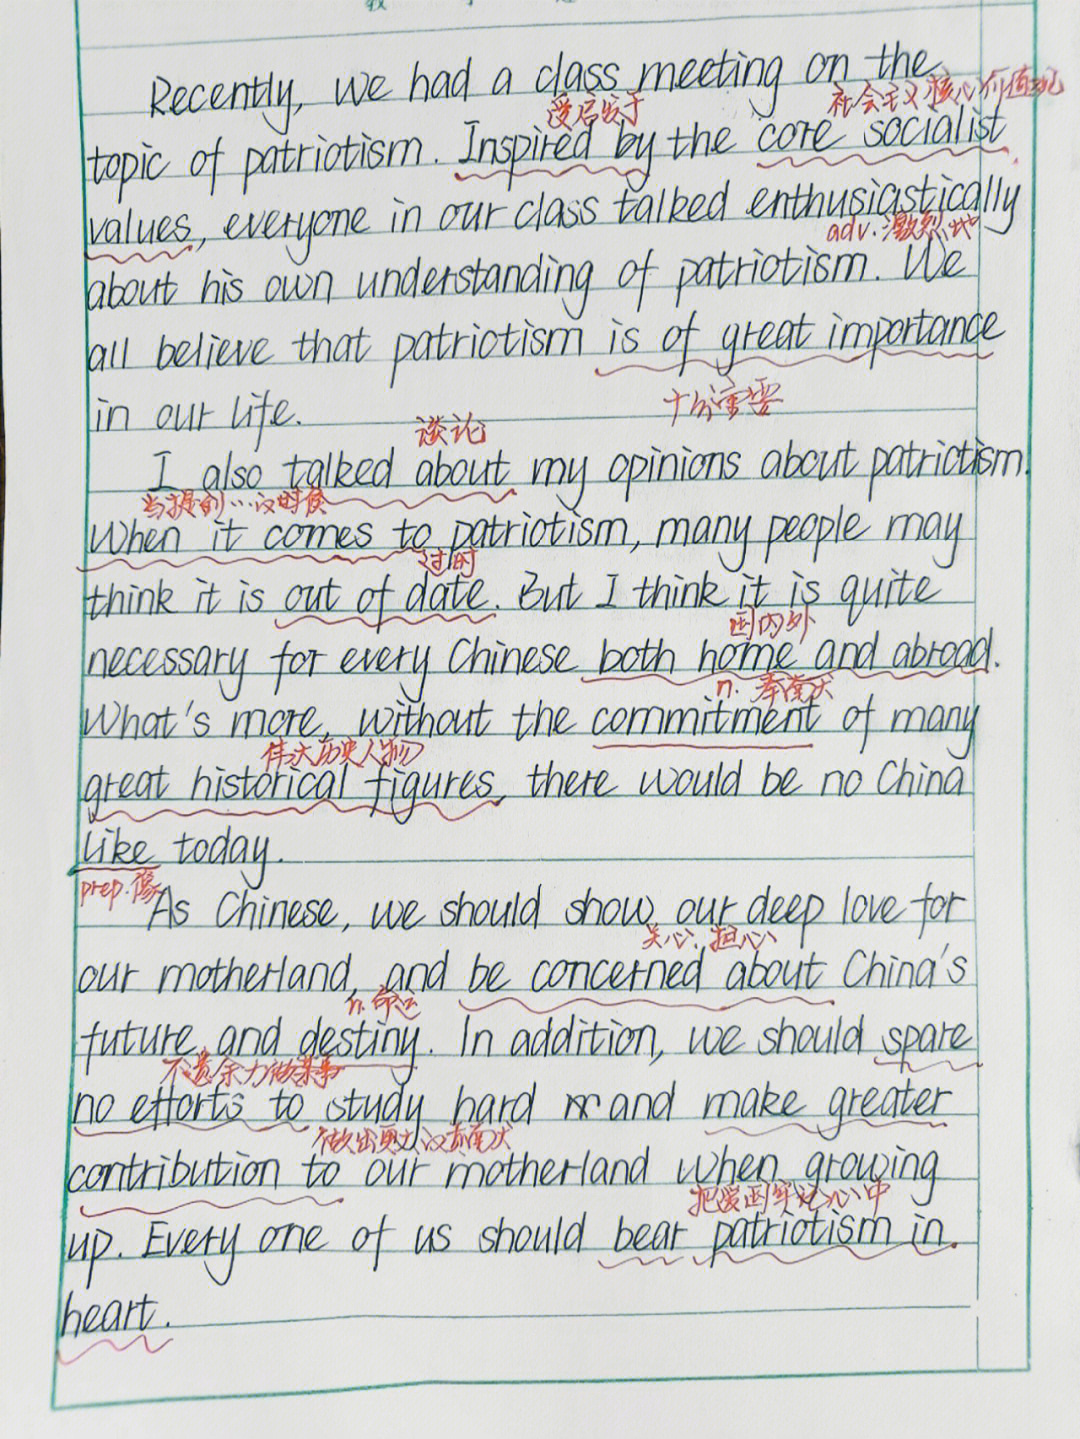 Recently, we had a class meeting on the
受启发于 社会主义核心价值观
topic of patriotism. Inspired by the core socialist
values, everyone in our class talked enthusiastically
adv. 激烈地
about his own understanding of patriotism. We
all believe that patriotism is of great importance
十分重要
in our life.
谈论
I also talked about my opinions about patriotism.
当提到…的时候
When it comes to patriotism, many people may
过时
think it is out of date. But I think it is quite
国内外
necessary for every Chinese both home and abroad.
n. 奉献
What's more, without the commitment of many
伟大历史人物
great historical figures, there would be no China
like today.
prep. 像
As Chinese, we should show our deep love for
关心，担心
our motherland, and be concerned about China's
n. 命运
future and destiny. In addition, we should spare
不遗余力做某事
no efforts to study hard and make greater
做出更大的贡献
contribution to our motherland when growing
把爱国牢记心中
up. Every one of us should bear patriotism in
heart.